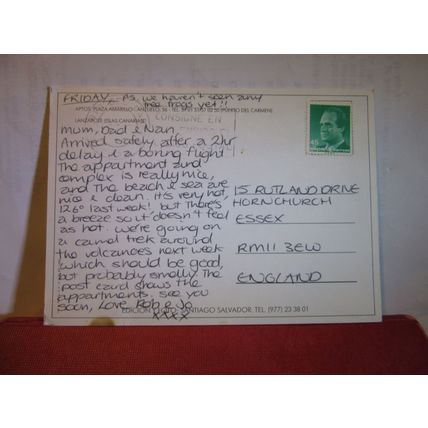 FRIDAY, PS, we haven't seen any
tree frogs yet!!
APTOS. PLAYA AMARILLO
(PUERTO DEL CARMEN)
LANZAROTE (ISLAS CANARIAS)
CONSIGNE EN
45
Mum, Dad & Nan,
Arrived safely, after a 2hr
delay & a boring flight
The appartment and
complex is really nice,
and the beach & sea are
nice & clean. It's very hot,
126° last week! but there's
a breeze so it doesn't feel
as hot. We're going on
a camel trek around
the volcanoes next week
which should be good,
but probably smelly. The
post card shows the
appartments. see you
soon, Love Rob & Jo
xxxx
15 RUTLAND DRIVE
HORNCHURCH
ESSEX
RM11 3EW
ENGLAND
SANTIAGO SALVADOR. TEL. (977) 23 38 01